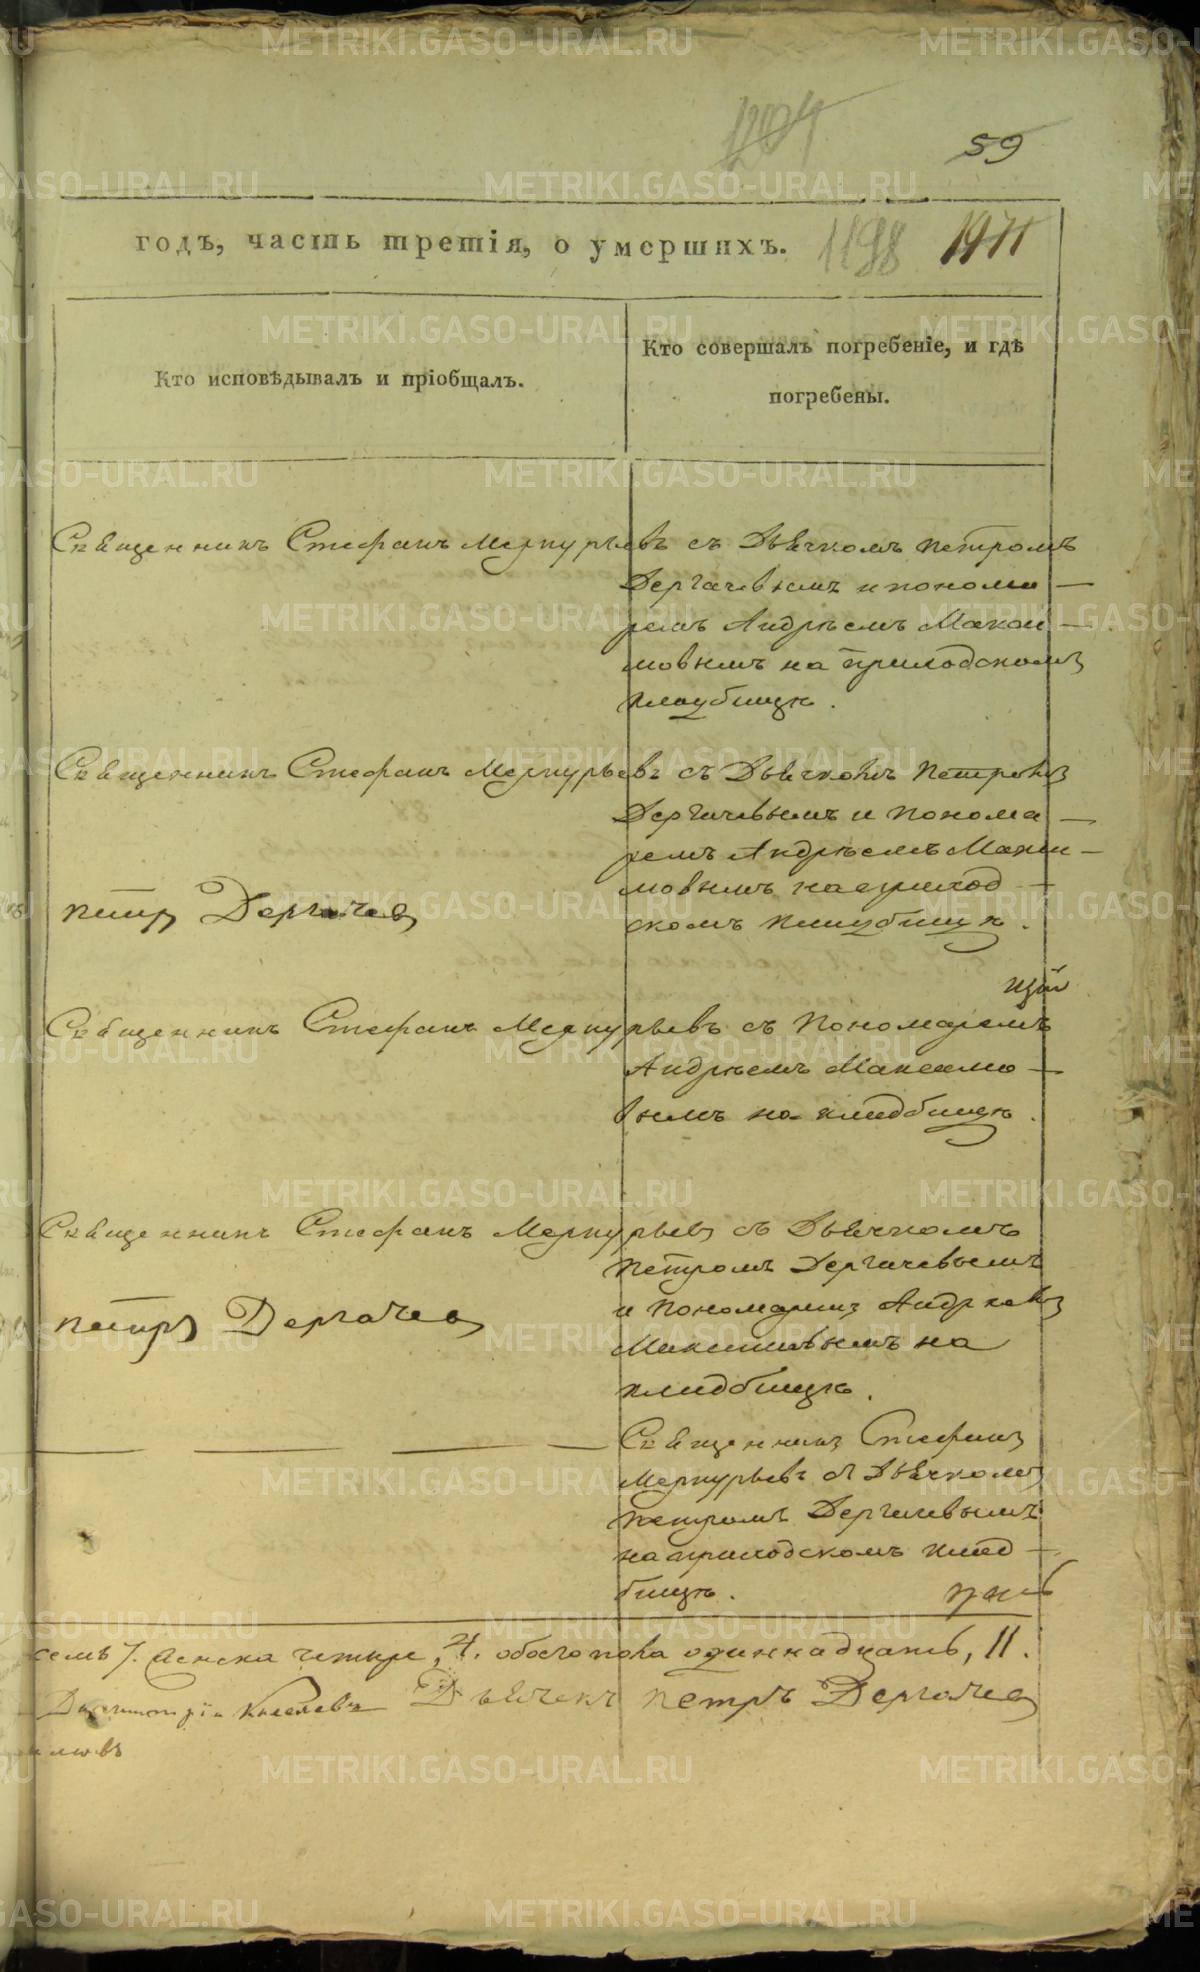 1204
59
годъ, часть третія, о умершихъ. 1198 1971
Кто исповѣдывалъ и пріобщалъ.
Кто совершалъ погребеніе, и гдѣ
погребены.
Священникъ Стефанъ Меркурьевъ съ Дьячкомъ Петромъ
Дергачевымъ и понома
ремъ Андрѣемъ Макси
мовымъ на приходскомъ
кладбищѣ.
Священникъ Стефанъ Меркурьевъ съ Дьячкомъ Петромъ
Дергачевымъ и понома
ремъ Андрѣемъ Макси
мовымъ на приход
скомъ кладбищѣ.
петръ Дергачев
Священникъ Стефанъ Меркурьевъ съ Пономаремъ
Андрѣемъ Максимо
вымъ на кладбищѣ.
Священникъ Стефанъ Меркурьевъ съ Дьячкомъ
Петромъ Дергачевымъ
и Пономаремъ Андрѣемъ
Максимовымъ на
кладбищѣ.
петръ Дергачев
Священникъ Стефанъ
Меркурьевъ съ Дьячкомъ
Петромъ Дергачевымъ
на приходскомъ клад
бищѣ.
семь 7. женска четыре, 4. обоего пола одиннадцать, 11.
Димитрій Киселевъ Дьячекъ петръ Дергачев
METRIKI.GASO-URAL.RU